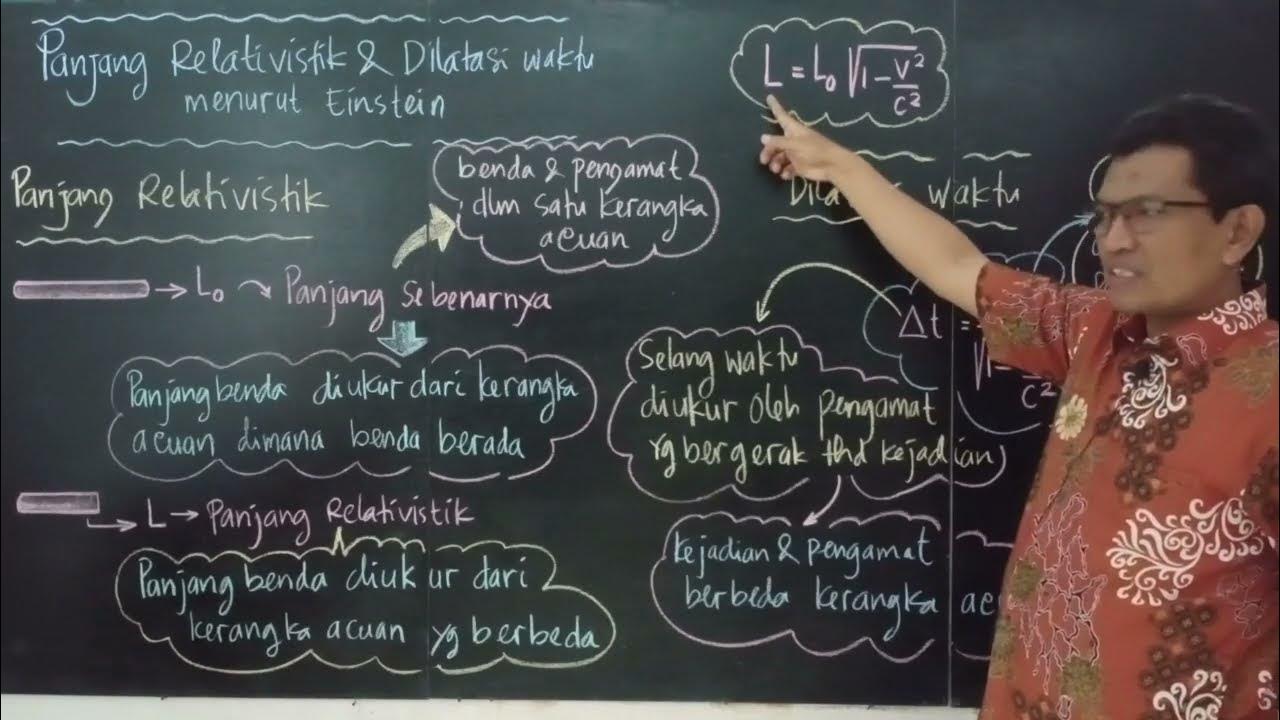 Panjang Relativistik & Dilatasi waktu
menurut Einstein
L = L₀ √1 - v²/c²
Panjang Relativistik
benda & pengamat
dlm satu kerangka
acuan
→ L₀ Panjang Sebenarnya
Panjang benda diukur dari kerangka
acuan dimana benda berada
→ L → Panjang Relativistik
Panjang benda diukur dari
kerangka acuan yg berbeda
Dilatasi waktu
Δt =
√1-
c²
Selang waktu
diukur oleh pengamat
yg bergerak thd kejadian
kejadian & pengamat
berbeda kerangka